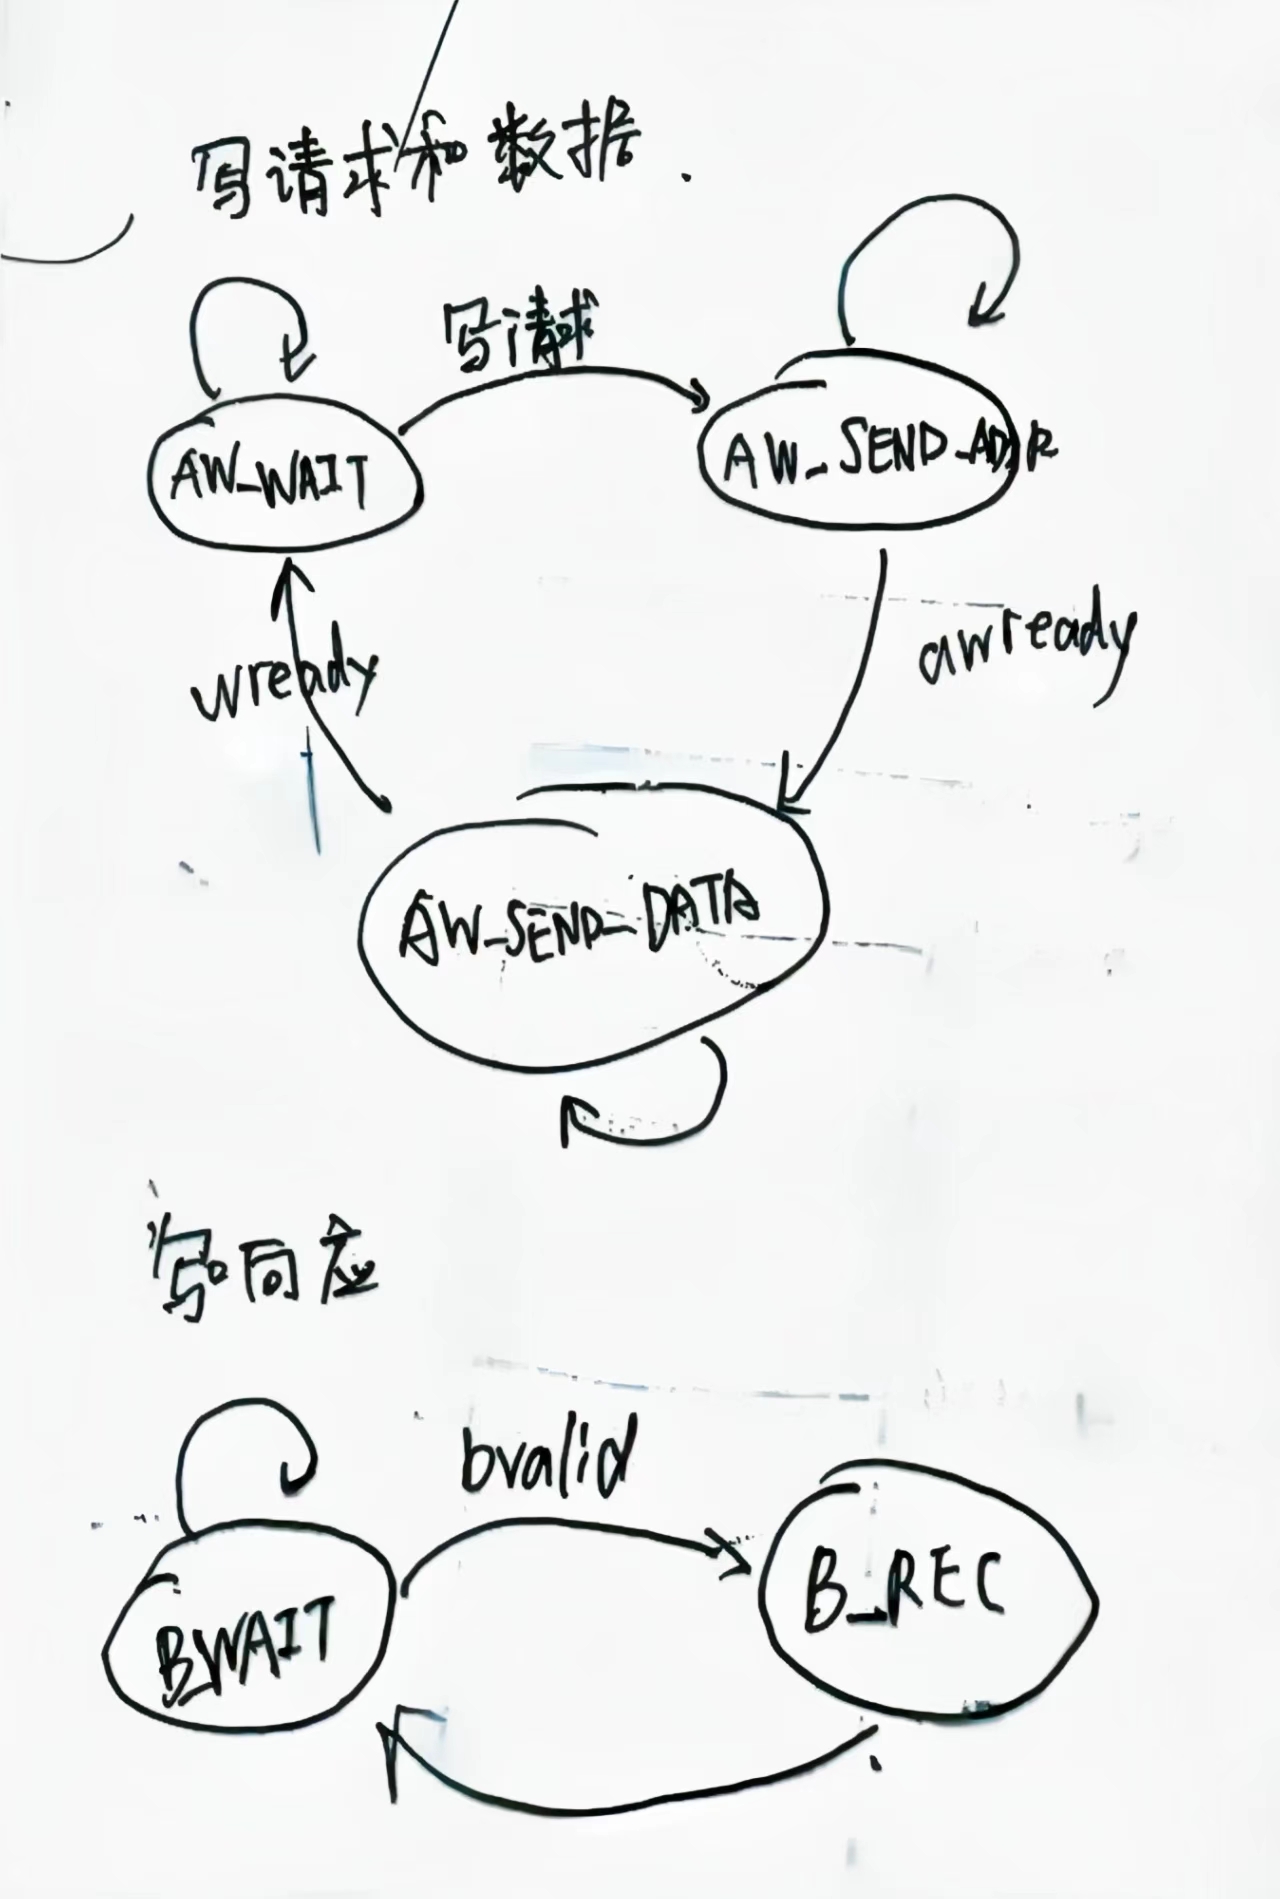 写请求和数据.
写请求
AW_WAIT
AW_SEND_ADDR
wready
awready
AW_SEND_DATA
写回应
bvalid
B_WAIT
B_REC